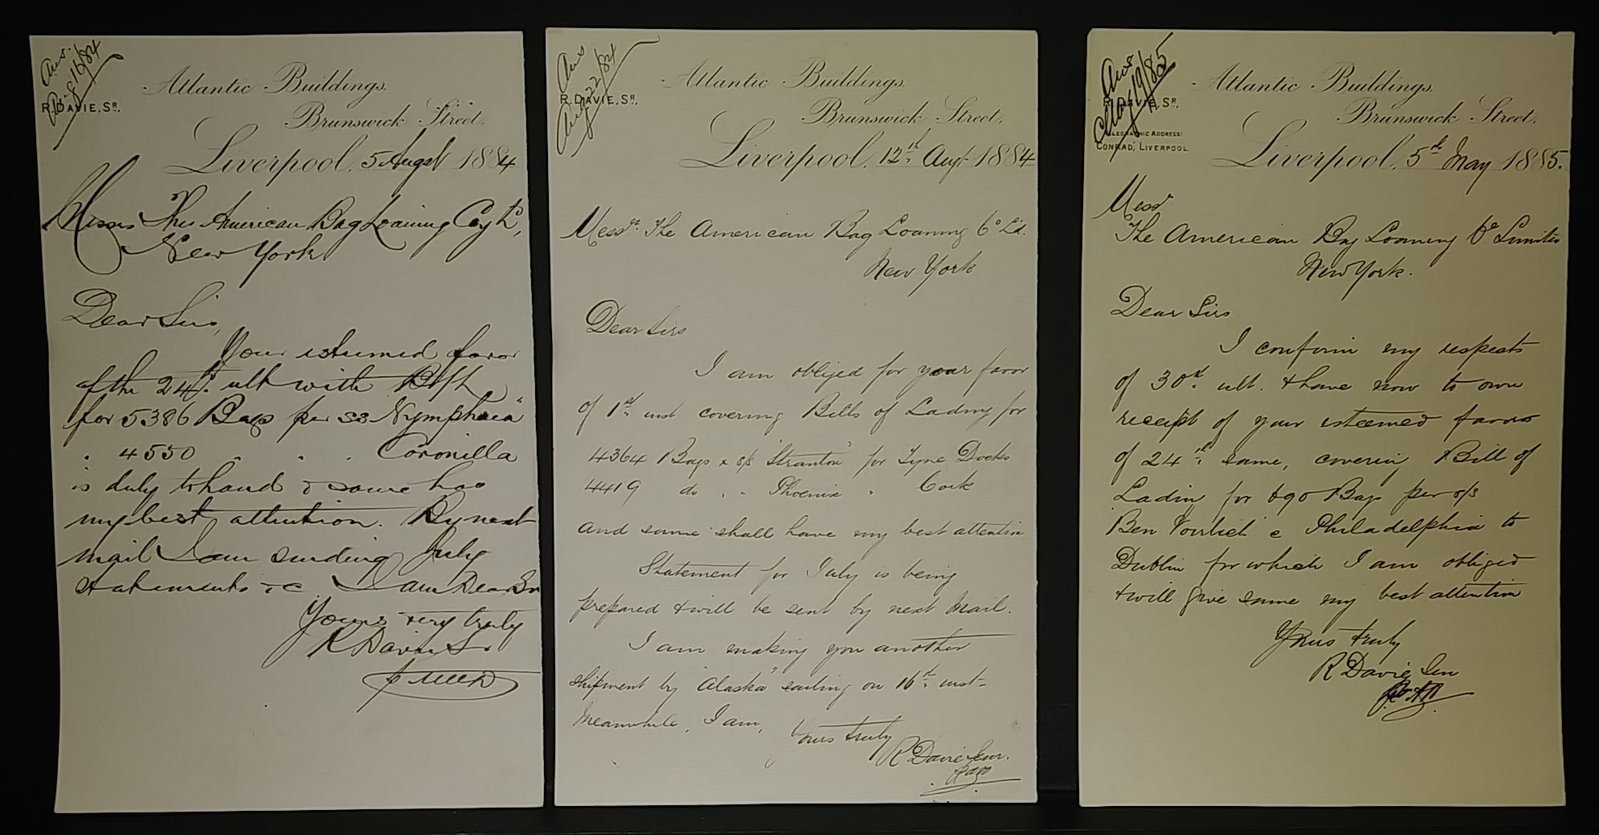 Ans.
Aug 16/84
R. DAVIE, SR.
Atlantic Buildings,
Brunswick Street,
Liverpool, 5 Augst 1884
Messrs The American Bag Loaning Coy Ld,
New York
Dear Sirs,
Your esteemed favor
of the 24th ult with B/sh
for 5386 Bags per SS "Nymphaea"
" 4550 " " " Coronilla
is duly to hand & same has
my best attention. By next
mail I am sending July
statements &c I am Dear Sirs
Yours very truly
R Davie Sr
Ans
Aug 22/84
R. DAVIE, SR.
Atlantic Buildings,
Brunswick Street,
Liverpool, 12th Augt 1884
Messrs. The American Bag Loaning Co Ld.
New York
Dear Sirs
I am obliged for your favor
of 1st inst covering Bills of Lading for
4364 Bags s/s "Stranton" for Tyne Docks
4419 do " " Phoenix " Cork
and same shall have my best attention
Statement for July is being
prepared & will be sent by next mail.
I am making you another
shipment by "Alaska" sailing on 16th inst-
Meanwhile, I am,
Yours truly
R Davie Senr.
Ans
May 19/85
R. DAVIE, SR.,
TELEGRAPHIC ADDRESS:
CONRAD, LIVERPOOL
Atlantic Buildings,
Brunswick Street,
Liverpool, 5th May 1885.
Messrs
The American Bag Loaning Co Limited
New York.
Dear Sirs
I confirm my respects
of 30th ult. & have now to own
receipt of your esteemed favor
of 24th same, covering Bill of
Lading for 690 Bags per s/s
Ben Voirlich @ Philadelphia to
Dublin for which I am obliged
& will give same my best attention
Yours truly
R Davie Sen